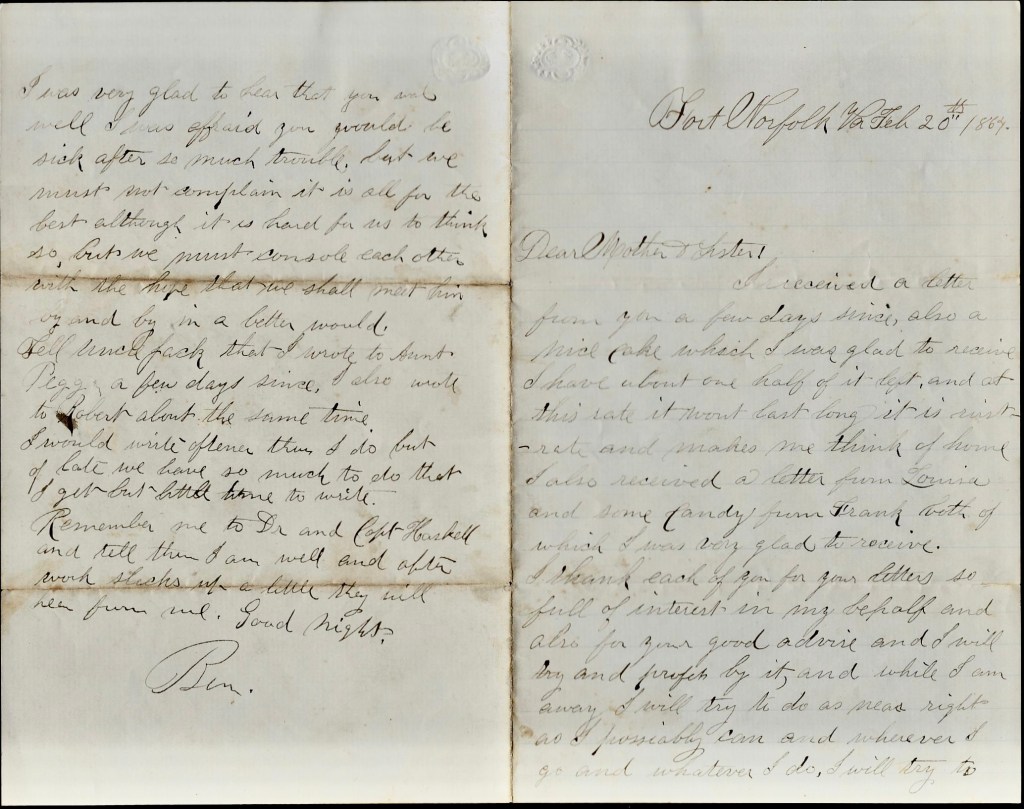 Fort Norfolk Va Feb 20th 1864.
Dear Mother & Sister!
I received a letter
from you a few days since, also a
nice cake which I was glad to receive
I have about one half of it left, and at
this rate it wont last long, it is first-
-rate and makes me think of home
I also received a letter from Louisa
and some candy from Frank both of
which I was very glad to receive.
I thank each of you for your letters so
full of interest in my behalf and
also for your good advise and I will
try and profit by it, and while I am
away I will try to do as near right
as I possiably can and wherever I
go and whatever I do, I will try to
I was very glad to hear that you was
well I was affraid you would be
sick after so much trouble, but we
must not complain it is all for the
best although it is hard for us to think
so, but we must console each other
with the hope that we shall meet him
by and by in a better would.
Tell Uncle Jack that I wrote to Aunt
Peggy a few days since, I also wrote
to Robert about the same time.
I would write oftener than I do but
of late we have so much to do that
I get but little time to write.
Remember me to Dr and Capt Haskell
and tell them I am well and after
work slacks up a little they will
hear from me. Good Night.
Ben.